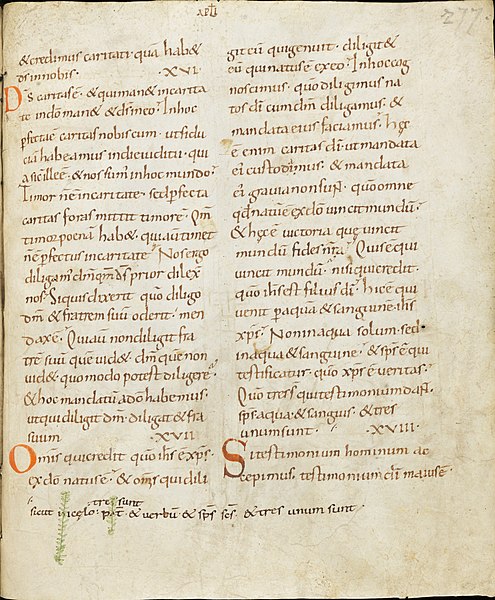 APLI
277
& credimus caritati quā hab&
d̄s in nobis · XVI ·
D̄s caritas ē & qui man& in carita
te in dō man& & d̄s in eo · In hoc
perfecta ē caritas nobiscum · ut fidu
ciā habeamus in die iudicii · quia
sic ille ē & nos sum; in hoc mundo ·
Timor n̄ ē in caritate · sed perfecta
caritas foras mittit timorē · Qm̄
timor poenā hab& · qui autē tim&
n̄ ē perfectus in caritate · Nos ergo
diligam; dm̄ qm̄ d̄s prior dilex
nos · Si quis dixerit quō diligo
dm̄ & fratrem suū oderit · men
dax ē · Qui aū non diligit fra
trē suū quē uid& · dm̄ quē non
uid& quomodo potest diligere
& hoc mandatū a dō habemus ·
ut qui diligit dm̄ · diligat & fra
suum · XVII ·
Om̄is qui credit quō ih̄s ē xp̄s
ex dō natus ē · & om̄s qui dili
git eū qui genuit · diligit &
eū qui natus ē ex eo · In hoc cog
noscimus · quō diligimus na
tos dī cum dm̄ diligamus · &
mandata eius faciamus · Hęc
ē enim caritas dī · ut mandata
ei; custodimus · & mandata
ei; grauia non sunt · quō omne
qd̄ natū ē ex dō uincit mundū ·
& hęc ē uictoria que uincit
mundū fides nr̄a · Quis ē qui
uincit mundū · nisi qui credit ·
quō ih̄s est filius dī · Hic ē qui
uenit p aquā & sanguinē ih̄s
xp̄s · Non in aqua solum · sed
in aqua & sanguine · & sp̄s ē qui
testificatur · quō xp̄s ē ueritas ·
Quō tres s̄ qui testimonium dant
sp̄s · aqua · & sanguis · & tres
unum sunt · XVIII ·
Si testimonium hominum ac
cepimus · testimonium dī maius ē ·
tres sunt
sicut in cęlo · pat̄ · & uerbū & sp̄s scs̄ · & tres unum sunt